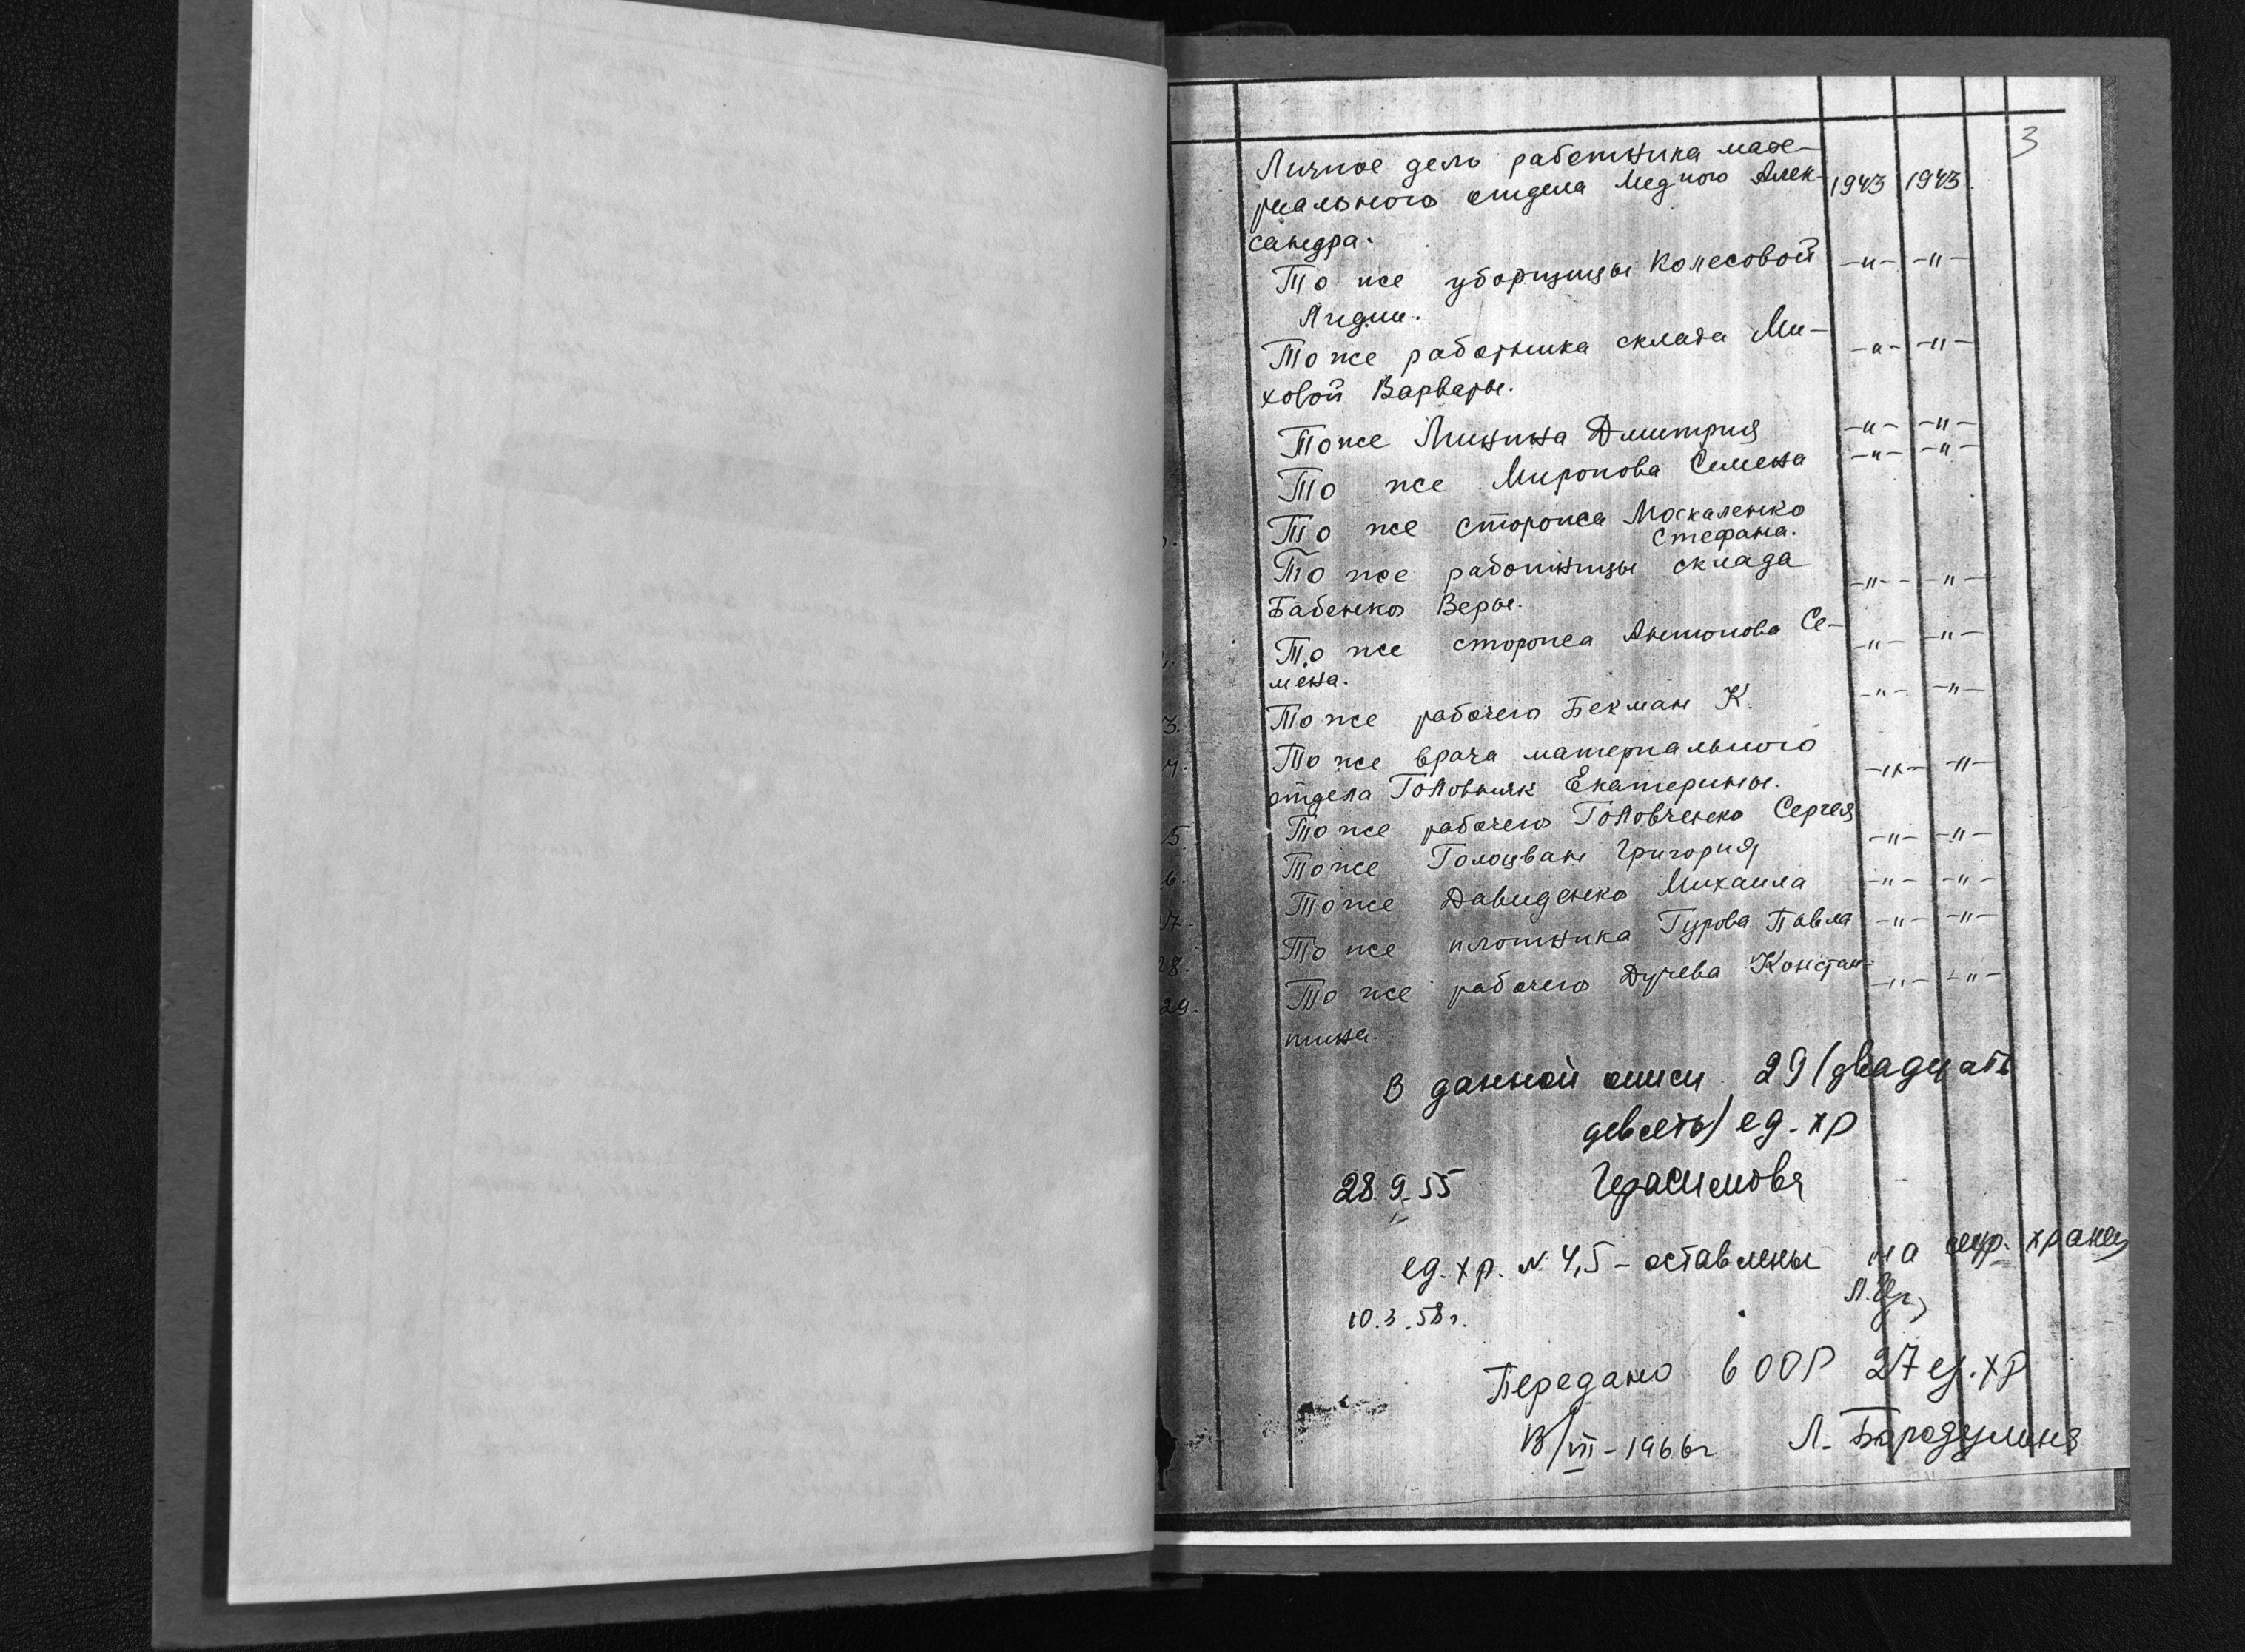 3
Личное дело работника мате-
риального отдела Медного Алек- 1943 1943.
сандра.
То же уборщицы Колесовой -"- -"-
Лидии.
То же работника склада Ми- -"- -"-
ховой Варвары.
То же Минина Дмитрия -"- -"-
То же Миронова Семена -"- -"-
То же сторожа Москаленко
Стефана.
То же работницы склада -"- -"-
Бабенко Веры.
То же сторожа Антонова Се- -"- -"-
мена.
3. То же рабочего Бекман К. -"- -"-
4. То же врача материального
отдела Головняк Екатерины. -"- -"-
5. То же рабочего Головченко Сергея
6. То же Голоцван Григория -"- -"-
7. То же Давиденко Михаила -"- -"-
28. То же плотника Гурова Павла -"- -"-
29. То же рабочего Дучева Констан- -"- -"-
тина.
В данной описи 29 (двадцать
девять) ед. хр
28.9.55 Герасимова
ед. хр. № 4,5 - оставлены на секр. хранен
10.3.58 г.
Передано в ООР 27 ед. хр
13/VII-1966г Л. Бородулина